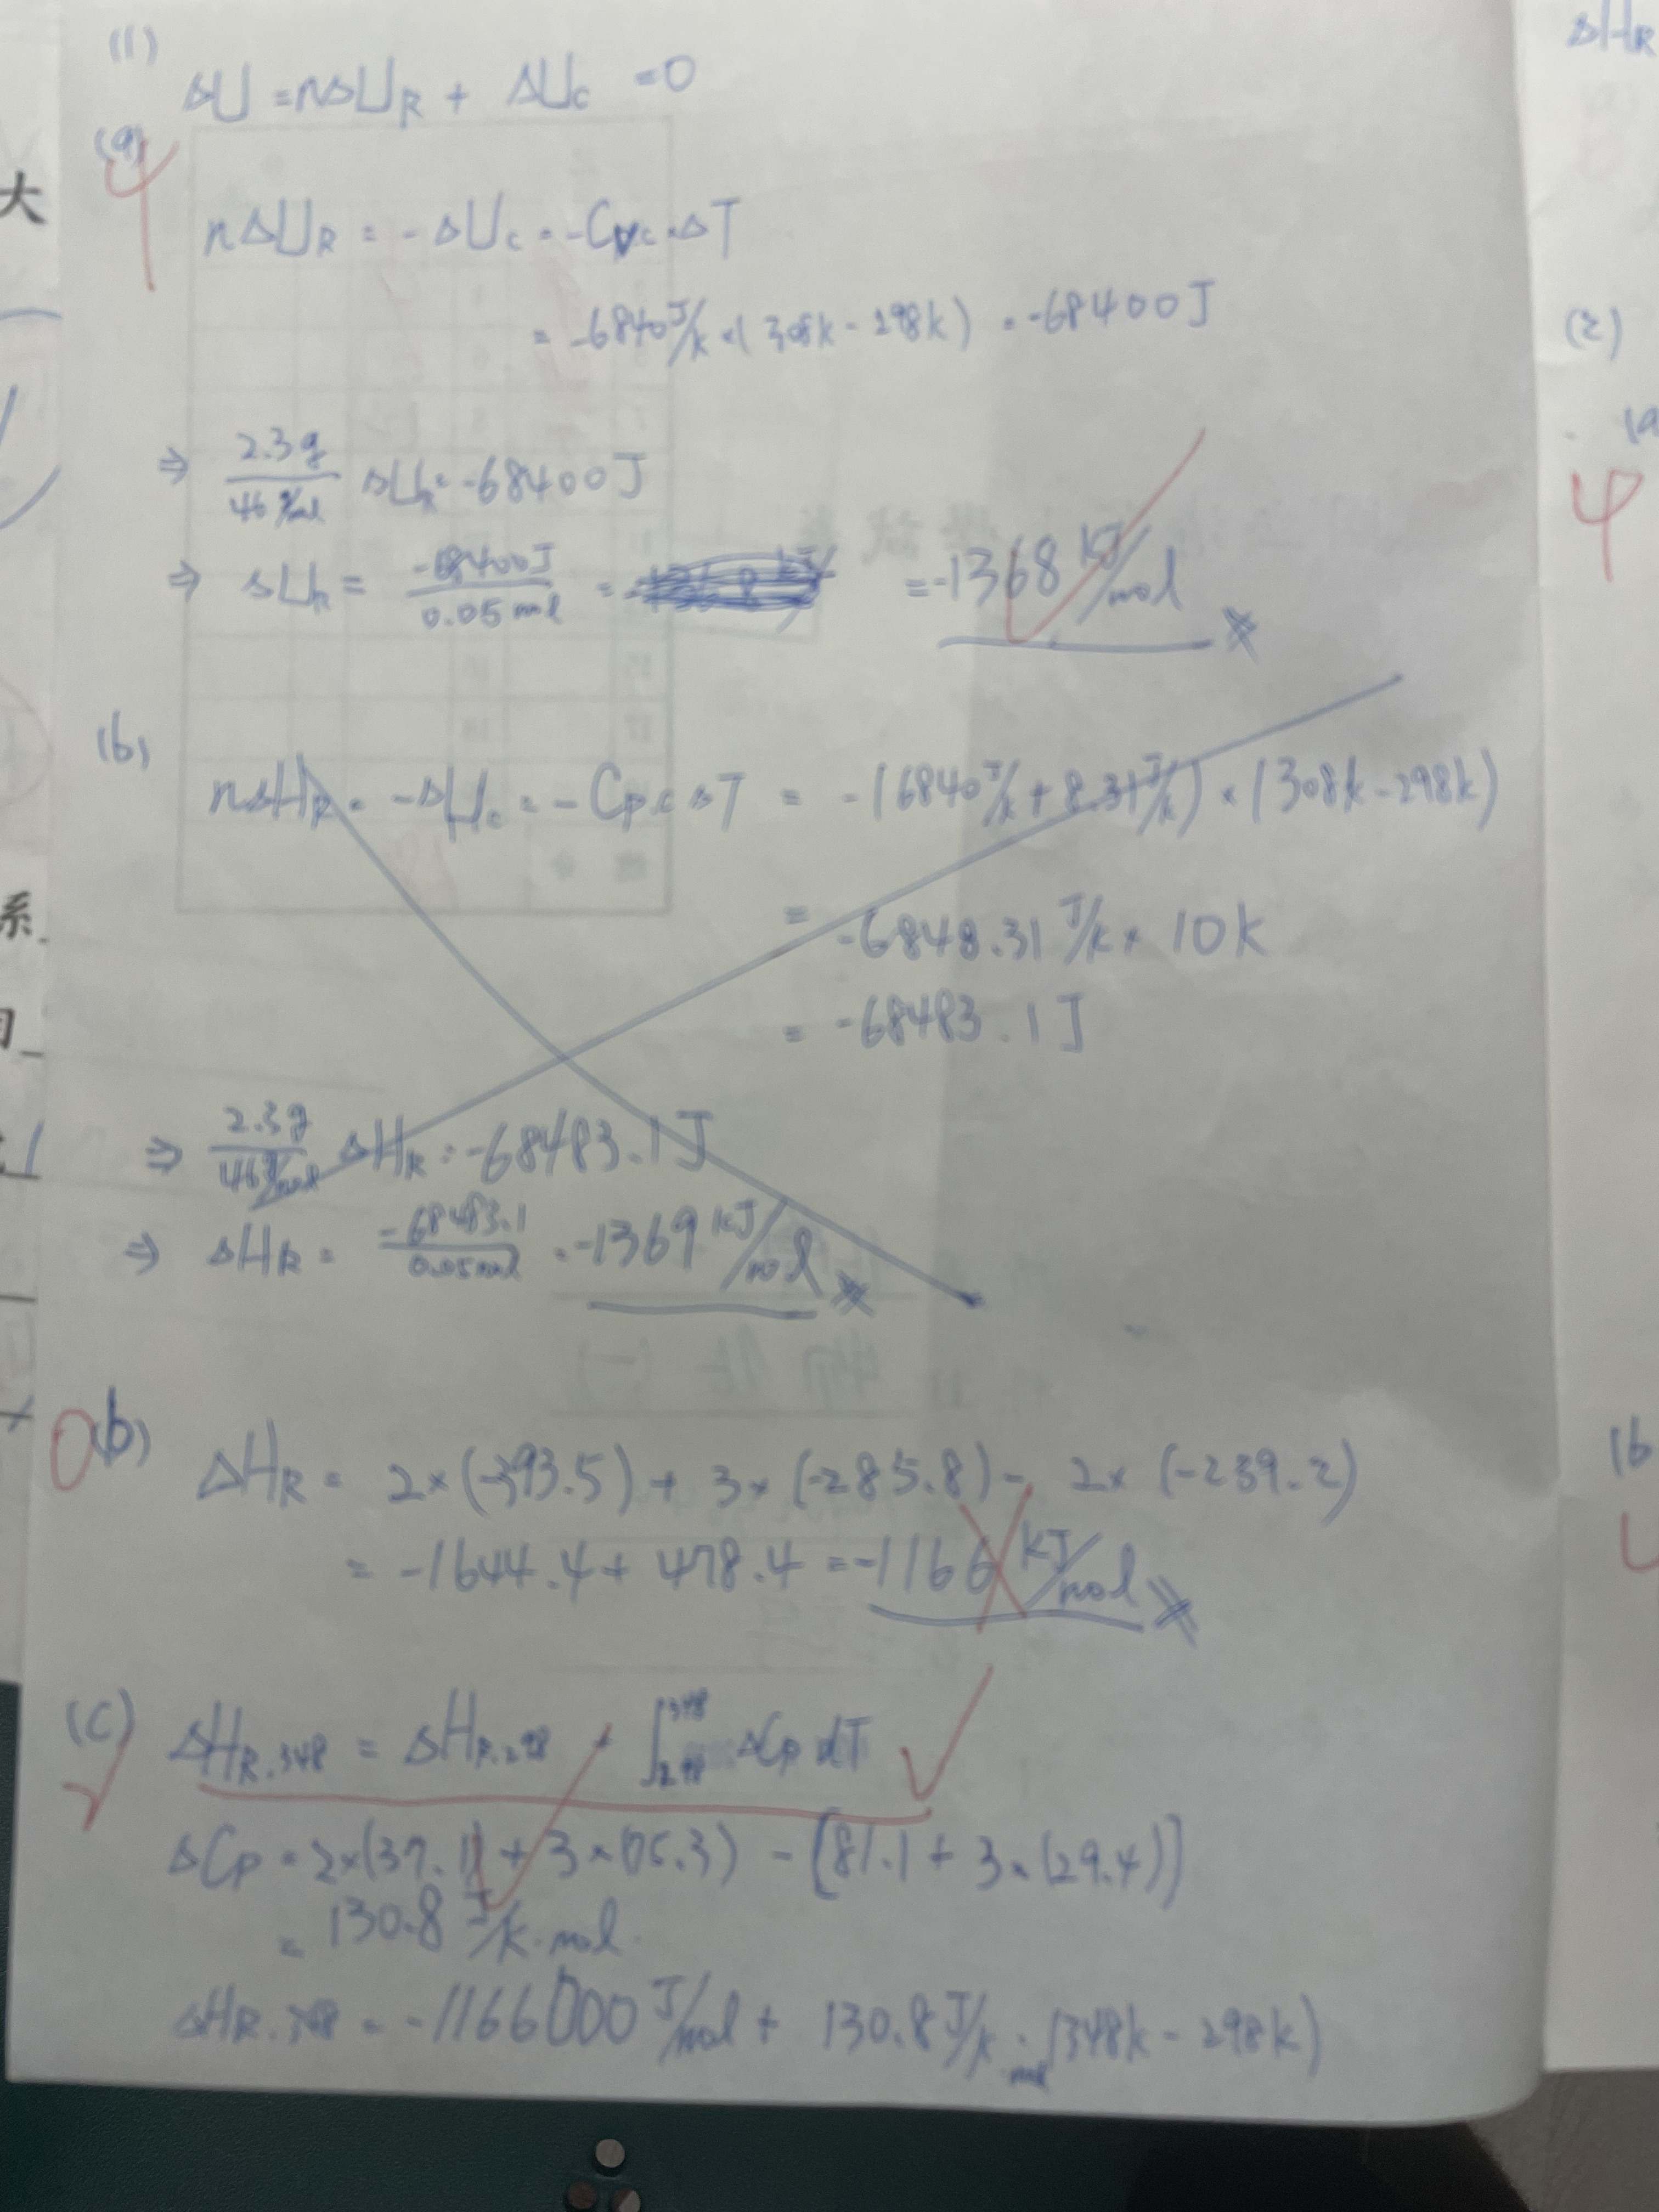 (1)
ΔU = nΔU_R + ΔU_c = 0
(a)
4
nΔU_R = -ΔU_c = -C_v,c·ΔT
= -6840 J/K × (308K - 298K) = -68400 J
⇒ 2.3g / 46 g/mol ΔU_R = -68400 J
⇒ ΔU_R = -68400 J / 0.05 mol = = -1368 kJ/mol
(b)
nΔH_R = -ΔH_c = -C_p,c ΔT = -(6840 J/K + 8.31 J/K) × (308K - 298K)
= -6848.31 J/K × 10K
= -68483.1 J
⇒ 2.3g / 46 g/mol ΔH_R = -68483.1 J
⇒ ΔH_R = -68483.1 / 0.05 mol = -1369 kJ/mol
0
(b) ΔH_R = 2×(-393.5) + 3×(-285.8) - 2×(-239.2)
= -1644.4 + 478.4 = -1166 kJ/mol
(c) ΔH_R.348 = ΔH_R.298 + ∫_298^348 ΔCp dT
ΔCp = 2×(37.1) + 3×(75.3) - [81.1 + 3×(29.4)]
= 130.8 J/K·mol
ΔH_R.348 = -1166000 J/mol + 130.8 J/K·mol (348K - 298K)
ΔH_R
(2)
(a
4
(b
大
系